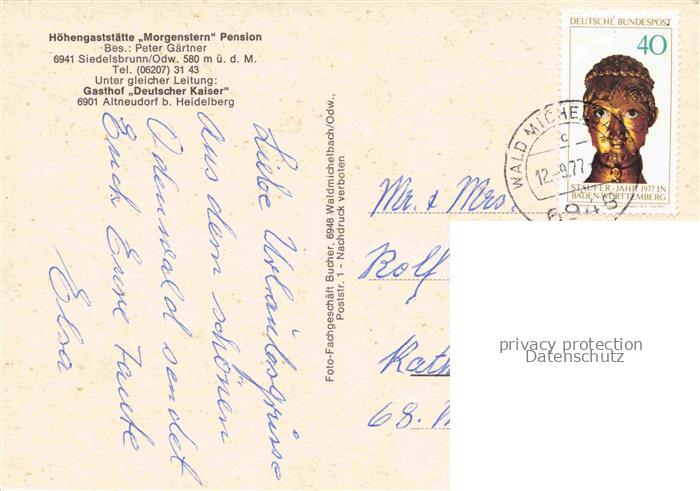 Höhengaststätte „Morgenstern" Pension
Bes.: Peter Gärtner
6941 Siedelsbrunn/Odw. 580 m ü. d. M.
Tel. (06207) 31 43
Unter gleicher Leitung:
Gasthof „Deutscher Kaiser"
6901 Altneudorf b. Heidelberg
Liebe Urlaubsgrüsse
aus dem schönen
Odenwald sendet
Euch Eure Tante
Elsa
Foto-Fachgeschäft Bucher, 6948 Waldmichelbach/Odw.,
Poststr. 1 - Nachdruck verboten
DEUTSCHE BUNDESPOST
40
STAUFER-JAHR 1977 IN
BADEN-WÜRTTEMBERG
WALD MICHEL
c
12.-9.77
6948
Mr. & Mrs.
Rolf
Kath
68.
privacy protection
Datenschutz